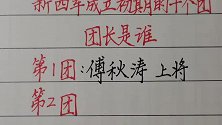 新四军成立初期的十个团
团长是谁
第1团:傅秋涛 上将
第2团